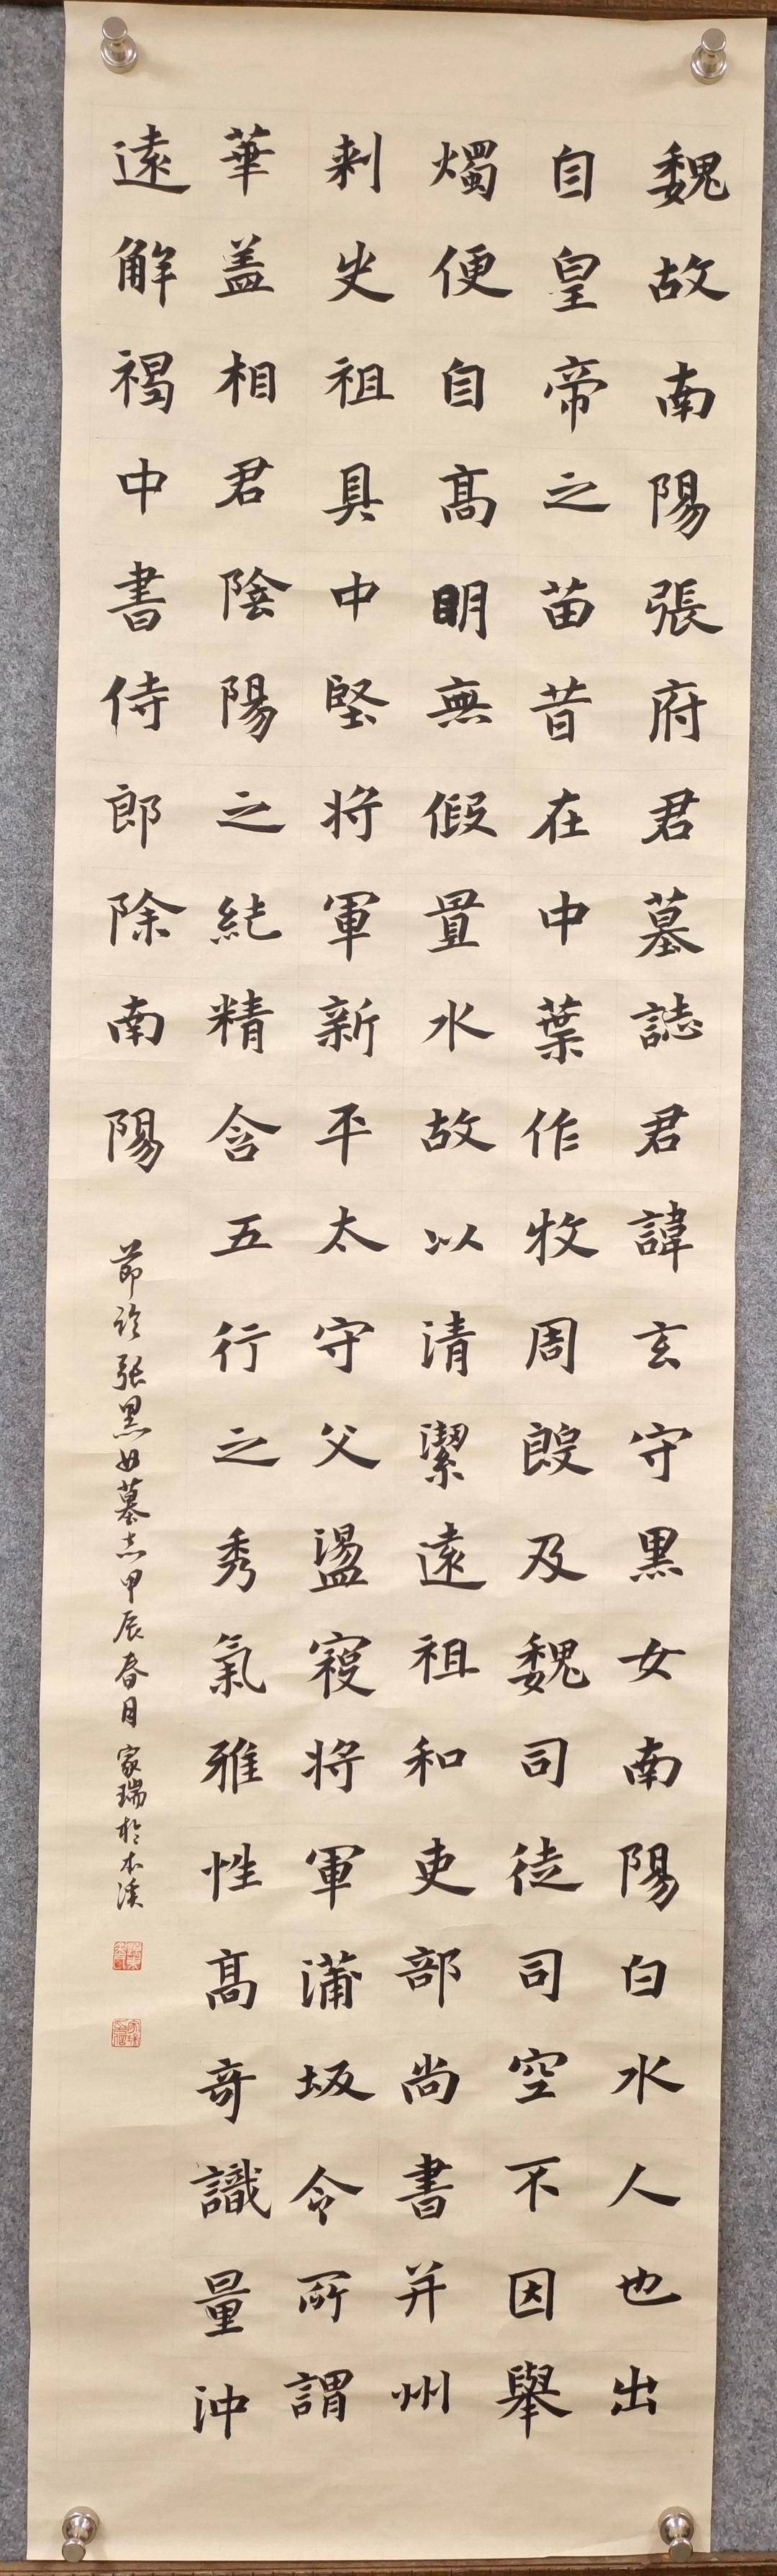 魏故南陽張府君墓誌君諱玄守黑女南陽白水人也出
自皇帝之苗昔在中葉作牧周殷及魏司徒司空不因舉
燭便自高明無假置水故以清潔遠祖和吏部尚書并州
刺史祖具中堅將軍新平太守父盪寇將軍蒲坂令所謂
華蓋相君陰陽之紀精含五行之秀氣雅性高奇識量沖
遠解褐中書侍郎除南陽
節臨張黑女墓志甲辰春月家瑞於本溪